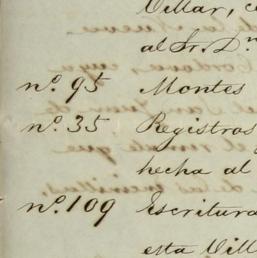 Villar, c
al Sr. Dn
nº. 95 Montes
nº. 35 Registros
hecha al
nº. 109 Escritura
esta Vill